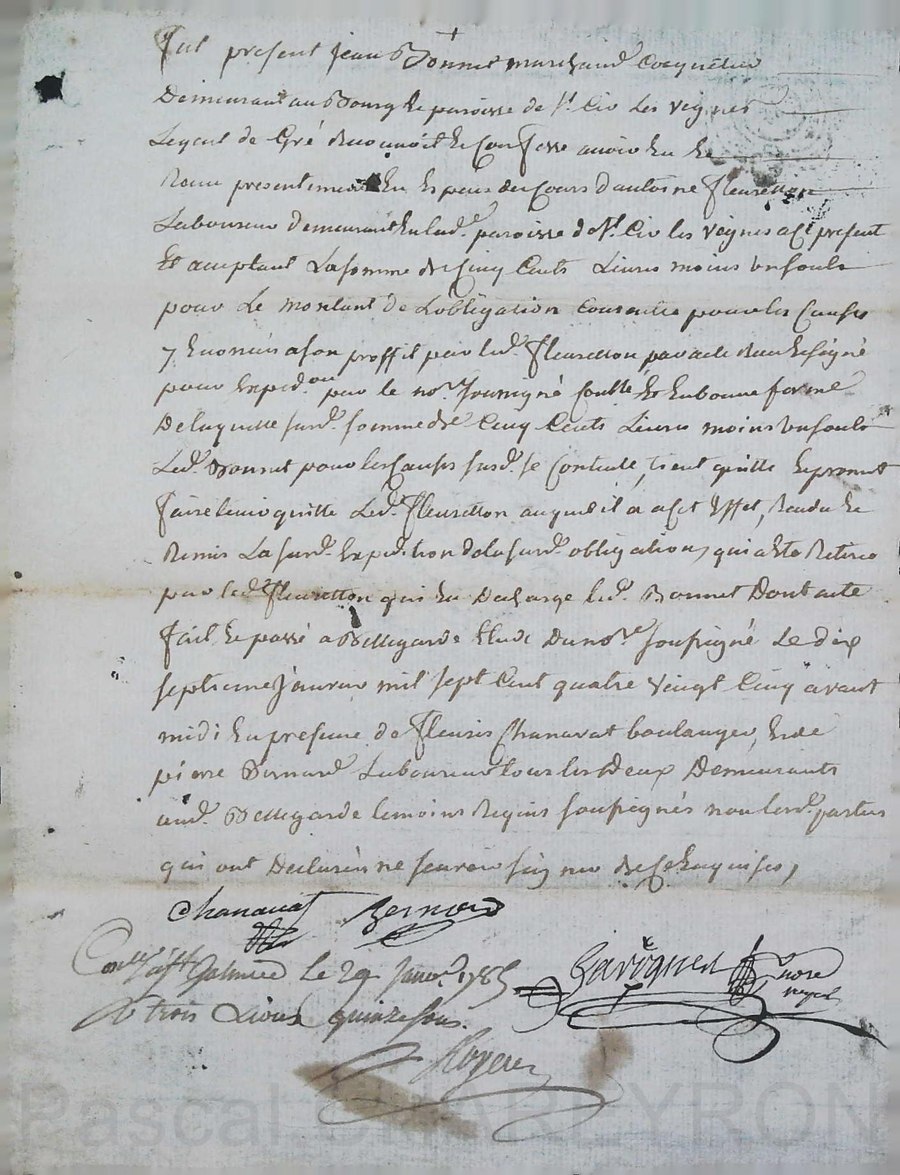 Fut present Jean Bonnet marchand Coquetier
Demeurant au Bourg & paroisse de St. Cir les vignes
Lequel de Gré Reconnoit & Confesse avoir Eu &
Receu presentement En Especes du Cours d'antoine Fleuretton
Laboureur demeurant En lad. paroisse de St. Cir les vignes acſt present
Et acceptant La somme de Cinq Cents Livres moins un soult
pour Le montant de Lobligation Consentie pour les Causes
y Enoncées a son proffit par led. Fleuretton par acte Receu & signé
pour Expedon par le nore soussigné Controllé & En bonne forme
De laquelle susd. somme de Cinq Cents Livres moins un soult
Led. Bonnet pour les causes susd. se Contente, tient quitte & promet
faire tenir quitte Led. Fleuretton auquel il a acſt Effet, Rendu &
Remis La susd. Expedition de la susd. obligation, qui a Eté Retirée
par led. Fleuretton qui En Decharge led. Bonnet Dont acte
fait & passé a Bellegarde Etude Du nore soussigné Le dix
septieme Janvier mil sept Cent quatre vingt Cinq avant
midi En presence de Fleuris Chanavat boulanger, & de
pierre Bernard Laboureur tous les Deux Demeurants
aud. Bellegarde temoins Requis soussignés non lesd. parties
qui ont Declarées ne scavoir signer de ce Enquises,
Chanavat Bernard
Con.llé a St Galmier Le 29 Janv. 1785
trois Livres quinze sous.
nore
royal
Pascal CHARLEYRON